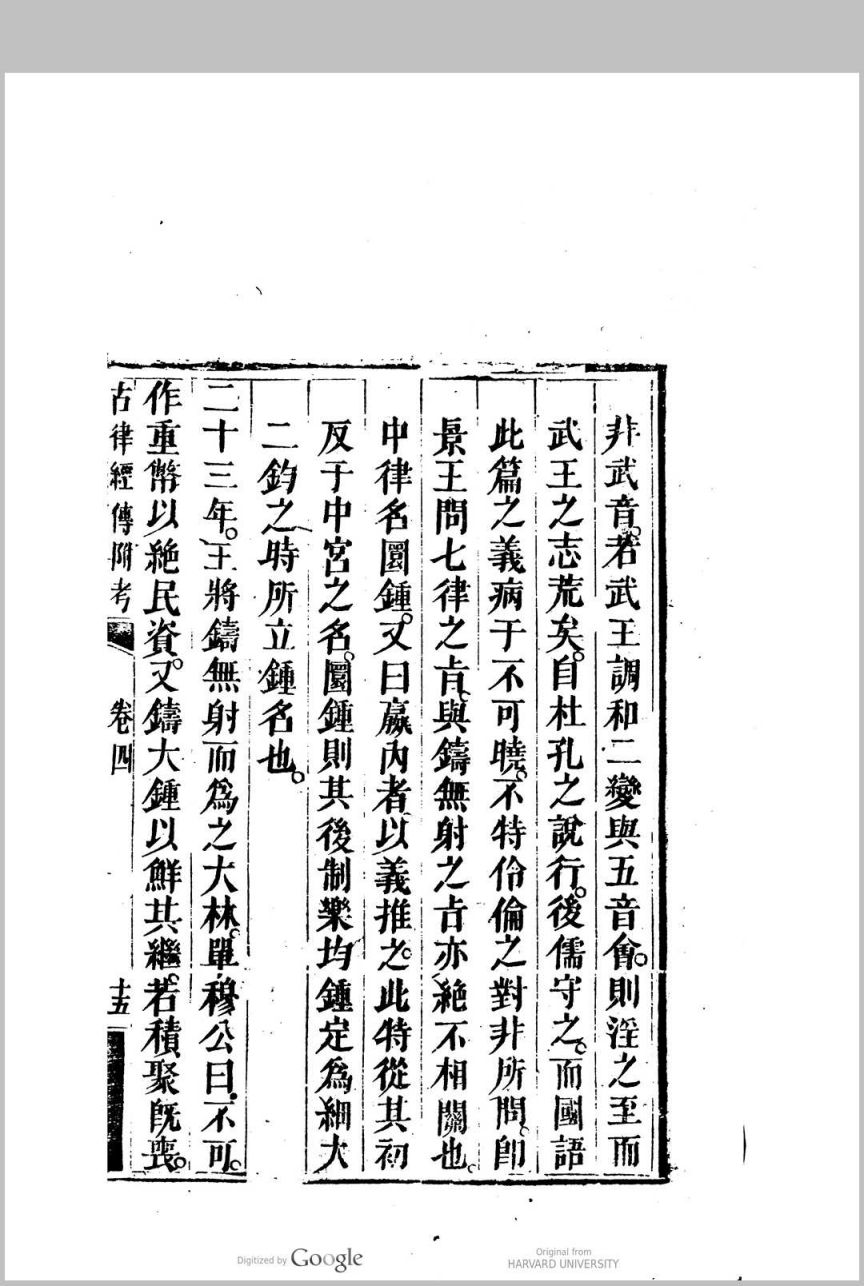 非武音。若武王調和二變與五音會。則淫之至而
武王之志荒矣。自杜孔之說行。後儒守之。而國語
此篇之義病于不可曉。不特伶倫之對非所問。卽
景王問七律之㫖。與鑄無射之㫖亦絶不相關也。
中律名圜鍾。又曰嬴內者以義推之。此特從其初
反于中宮之名。圜鍾則其後制樂均鍾定為細大
二鈞之時所立鍾名也。
二十三年。王將鑄無射而為之大林。單穆公曰。不可。
作重幣以絶民資。又鑄大鍾以鮮其繼。若積聚旣喪。
古律經傳附考 卷四 十五
Digitized by Google
Original from
HARVARD UNIVERSITY